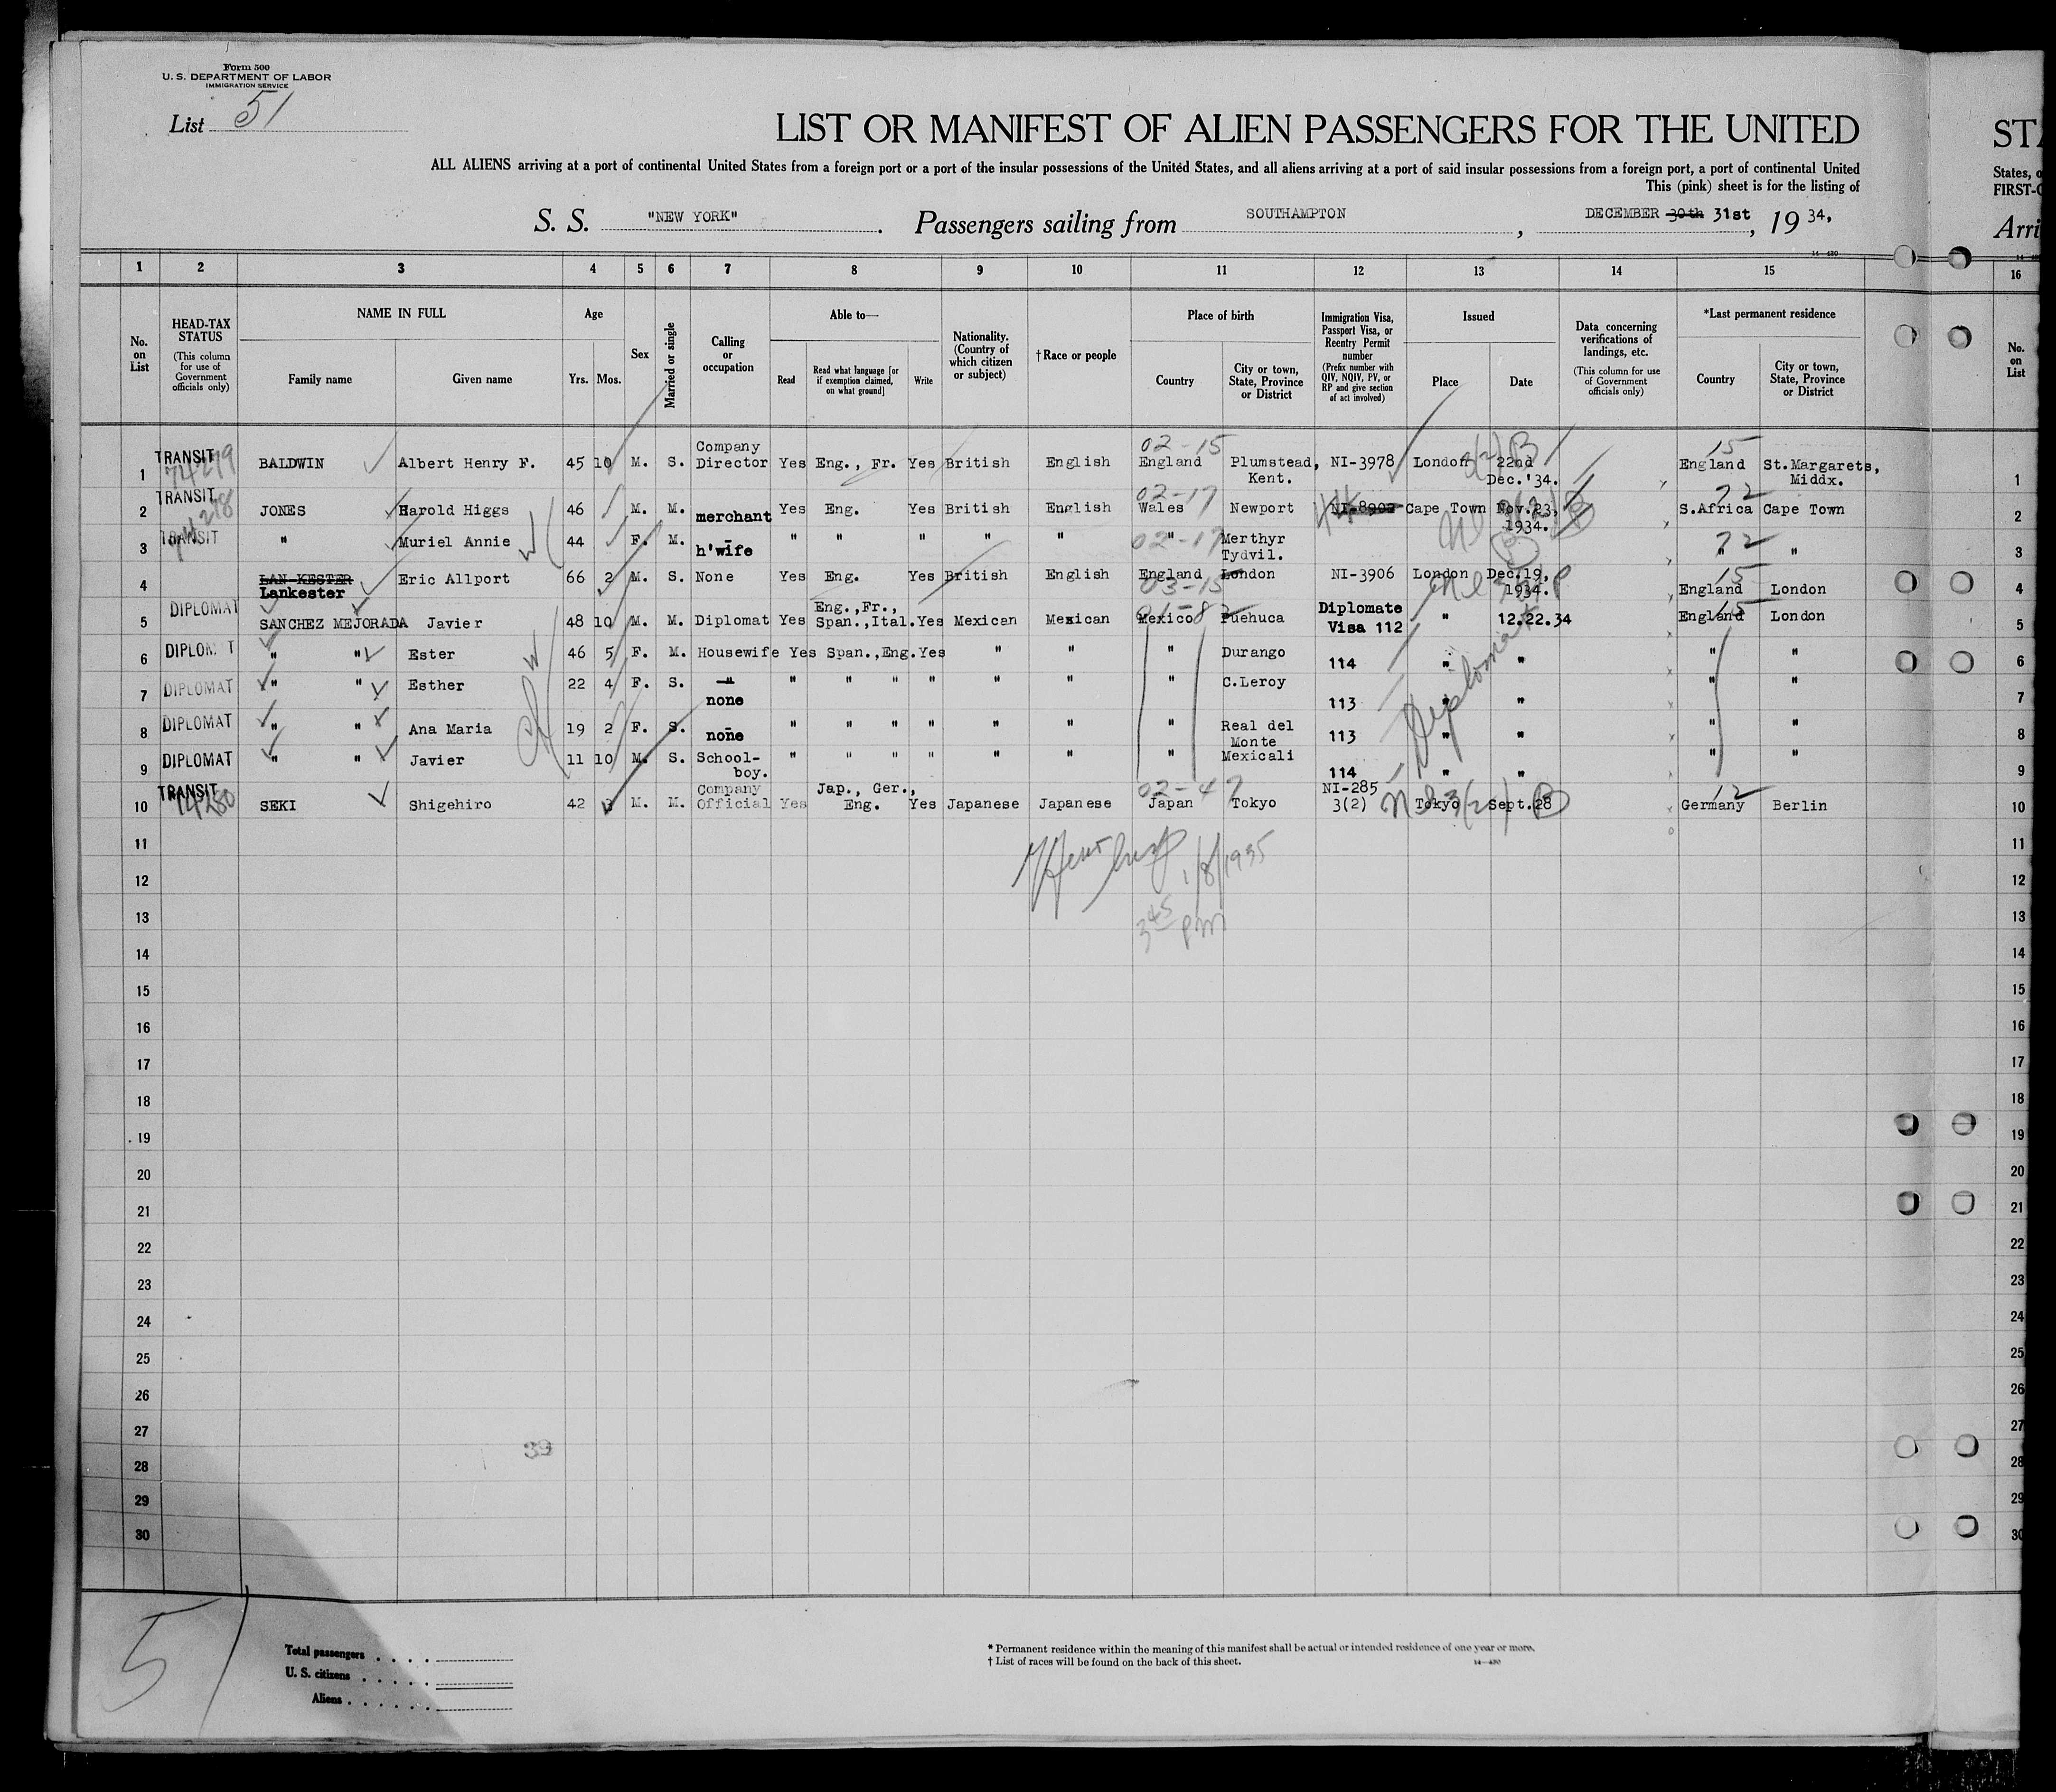 Form 500
U. S. DEPARTMENT OF LABOR
IMMIGRATION SERVICE
List 51
LIST OR MANIFEST OF ALIEN PASSENGERS FOR THE UNITED
ALL ALIENS arriving at a port of continental United States from a foreign port or a port of the insular possessions of the United States, and all aliens arriving at a port of said insular possessions from a foreign port, a port of continental United
This (pink) sheet is for the listing of
S. S. "NEW YORK" . Passengers sailing from SOUTHAMPTON , DECEMBER 30th 31st , 19 34,
STA
States, o
FIRST-C
Arri
1 2 3 4 5 6 7 8 9 10 11 12 13 14 15 16
No. on List
HEAD-TAX STATUS
(This column for use of Government officials only)
NAME IN FULL
Family name Given name
Age
Yrs. Mos.
Sex
Married or single
Calling or occupation
Able to—
Read
Read what language [or if exemption claimed, on what ground]
Write
Nationality. (Country of which citizen or subject)
† Race or people
Place of birth
Country
City or town, State, Province or District
Immigration Visa, Passport Visa, or Reentry Permit number
(Prefix number with QIV, NQIV, PV, or RP and give section of act involved)
Issued
Place Date
Data concerning verifications of landings, etc.
(This column for use of Government officials only)
*Last permanent residence
Country
City or town, State, Province or District
No. on List
1 TRANSIT 74279 BALDWIN Albert Henry F. 45 10 M. S. Company Director Yes Eng., Fr. Yes British English 02-15 England Plumstead, Kent. NI-3978 London 22nd Dec.'34. 3(2) B 15 England St.Margarets, Middx. 1
2 TRANSIT JONES Harold Higgs 46 M. M. merchant Yes Eng. Yes British English 02-17 Wales Newport Cape Town Nov.23, 1934. 72 S.Africa Cape Town 2
3 TRANSIT " Muriel Annie 44 F. M. h'wife " " " " " 02-17 " Merthyr Tydvil. 72 " " 3
4 LAN KESTER Lankester Eric Allport 66 2 M. S. None Yes Eng. Yes British English England London 03-15 NI-3906 London Dec.19, 1934. 15 England London 4
5 DIPLOMAT SANCHEZ MEJORADA Javier 48 10 M. M. Diplomat Yes Eng.,Fr., Span.,Ital. Yes Mexican Mexican Mexico Puehuca Diplomate Visa 112 " 12.22.34 15 England London 5
6 DIPLOMAT " " Ester 46 5 F. M. Housewife Yes Span.,Eng. Yes " " " Durango 114 " " " " 6
7 DIPLOMAT " " Esther 22 4 F. S. " none " " " " " " " C.Leroy 113 " " " " 7
8 DIPLOMAT " " Ana Maria 19 2 F. S. none " " " " " " " Real del Monte 113 " " " " 8
9 DIPLOMAT " " Javier 11 10 M. S. School-boy. " " " " " " " Mexicali 114 " " " " 9
Diplomat
10 TRANSIT 74280 SEKI Shigehiro 42 M. M. Company Official Yes Jap., Ger., Eng. Yes Japanese Japanese 02-47 Japan Tokyo NI-285 3(2) Tokyo Sept.28 3(2) B 12 Germany Berlin 10
1/8/1935
3 45 pm
11 11
12 12
13 13
14 14
15 15
16 16
17 17
18 18
19 19
20 20
21 21
22 22
23 23
24 24
25 25
26 26
27 27
39
28 28
29 29
30 30
51
Total passengers
U. S. citizens
Aliens
* Permanent residence within the meaning of this manifest shall be actual or intended residence of one year or more.
† List of races will be found on the back of this sheet.
14—430